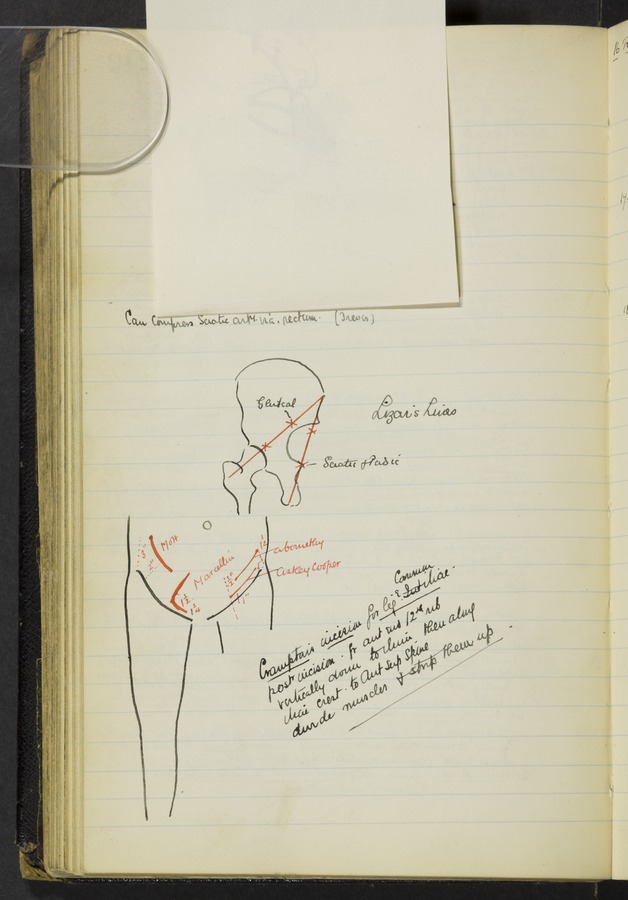 Can Compress Sciatic art. via. rectum. (Treves)
Gluteal
Lizars Lines
Sciatic & Pudic
Mott
Marcellin
abernethy
Astley Cooper
1½
1¼
Common
Cramptons incision for lig & Int iliac.
post incision. fr ant end 12th rib
vertically down to ilium then along
iliac crest. to Ant Sup Spine
divide muscles & strip them up.
16
17
18